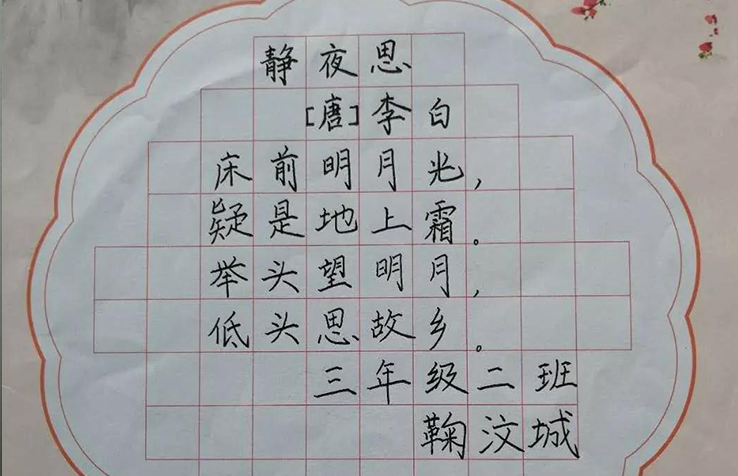 静夜思
[唐]李白
床前明月光，
疑是地上霜。
举头望明月，
低头思故乡。
三年级二班
鞠汶城